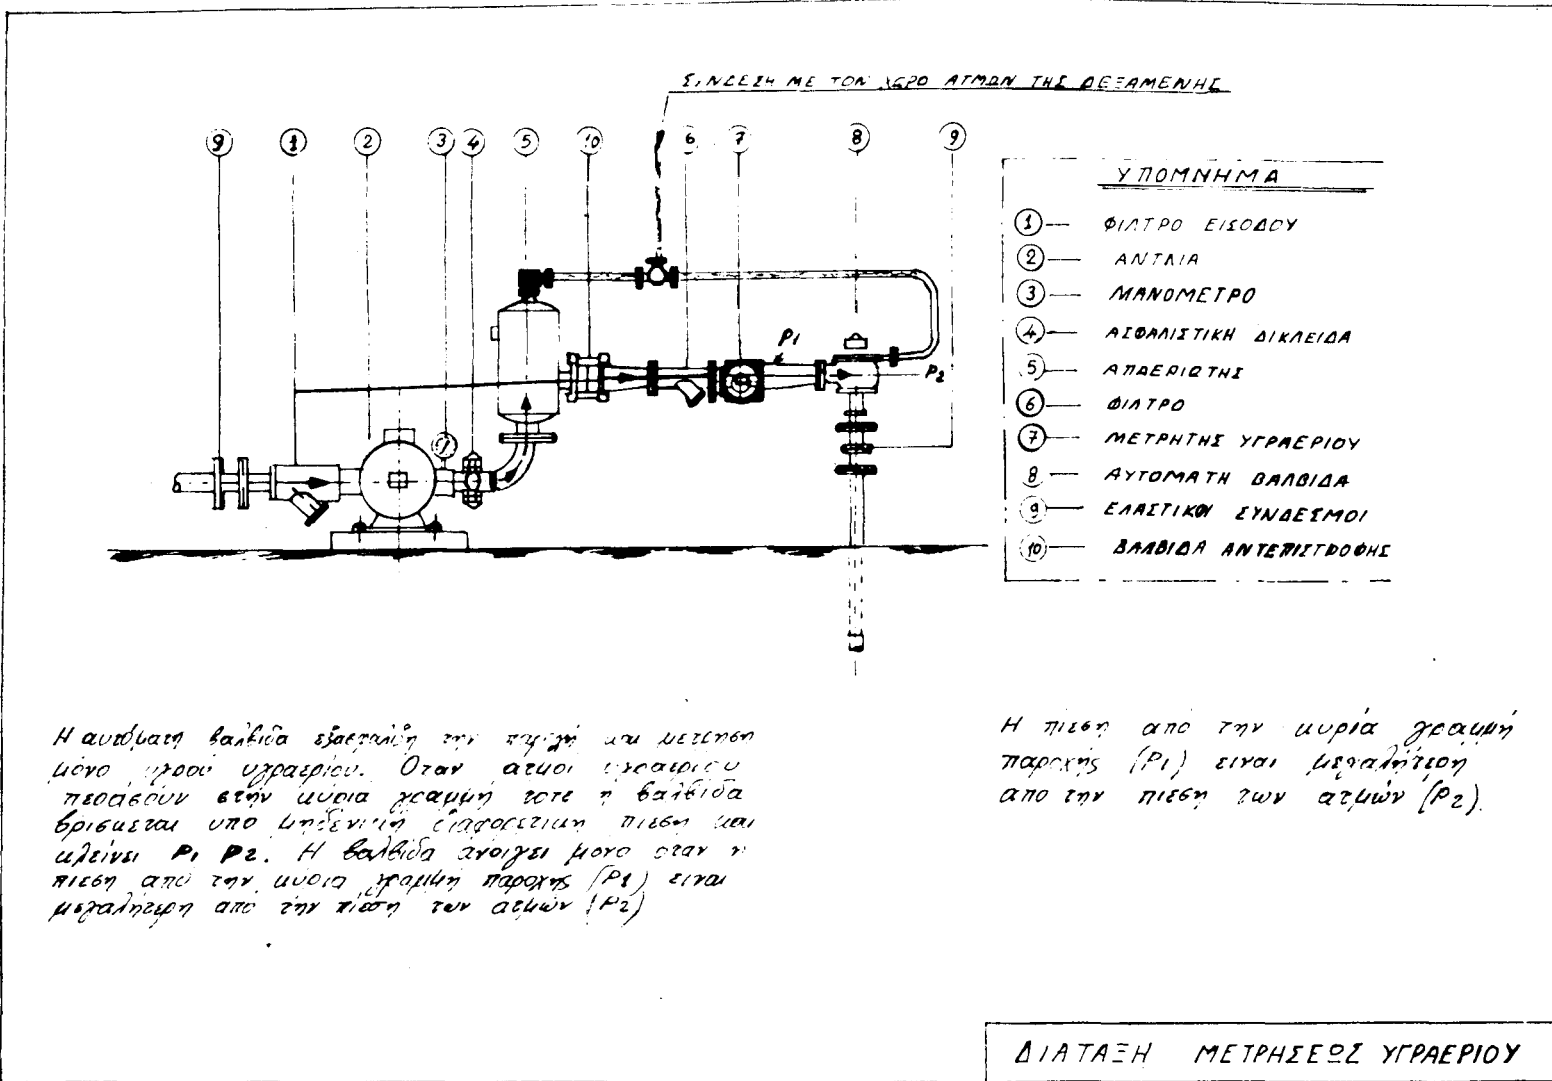 ΣΥΝΔΕΣΗ ΜΕ ΤΟΝ ΧΩΡΟ ΑΤΜΩΝ ΤΗΣ ΔΕΞΑΜΕΝΗΣ
9 1 2 3 4 5 10 6 7 8 9
P1
P2
ΥΠΟΜΝΗΜΑ
1 — ΦΙΛΤΡΟ ΕΙΣΟΔΟΥ
2 — ΑΝΤΛΙΑ
3 — ΜΑΝΟΜΕΤΡΟ
4 — ΑΣΦΑΛΙΣΤΙΚΗ ΔΙΚΛΕΙΔΑ
5 — ΑΠΑΕΡΙΩΤΗΣ
6 — ΦΙΛΤΡΟ
7 — ΜΕΤΡΗΤΗΣ ΥΓΡΑΕΡΙΟΥ
8 — ΑΥΤΟΜΑΤΗ ΒΑΛΒΙΔΑ
9 — ΕΛΑΣΤΙΚΟΙ ΣΥΝΔΕΣΜΟΙ
10 — ΒΑΛΒΙΔΑ ΑΝΤΕΠΙΣΤΡΟΦΗΣ
Η αυτόματη βαλβίδα εξασφαλίζη την παροχή και μέτρηση
μόνο υγρού υγραερίου. Οταν ατμοί υγραερίου
περάσουν στήν κύρια γραμμή τοτε η βαλβίδα
βρίσκεται υπο μηδενική διαφορετική πιεση και
κλείνει P1 P2. Η βαλβίδα ανοίγει μόνο οταν η
πιεση από την κύρια γραμμή παροχής (P1) ειναι
μεγαλήτερη από την πίεση των ατμών (P2)
Η πιεση από την κυρία γραμμή
παροχής (P1) ειναι μεγαλήτερη
απο την πιεση των ατμών (P2).
ΔΙΑΤΑΞΗ ΜΕΤΡΗΣΕΩΣ ΥΓΡΑΕΡΙΟΥ